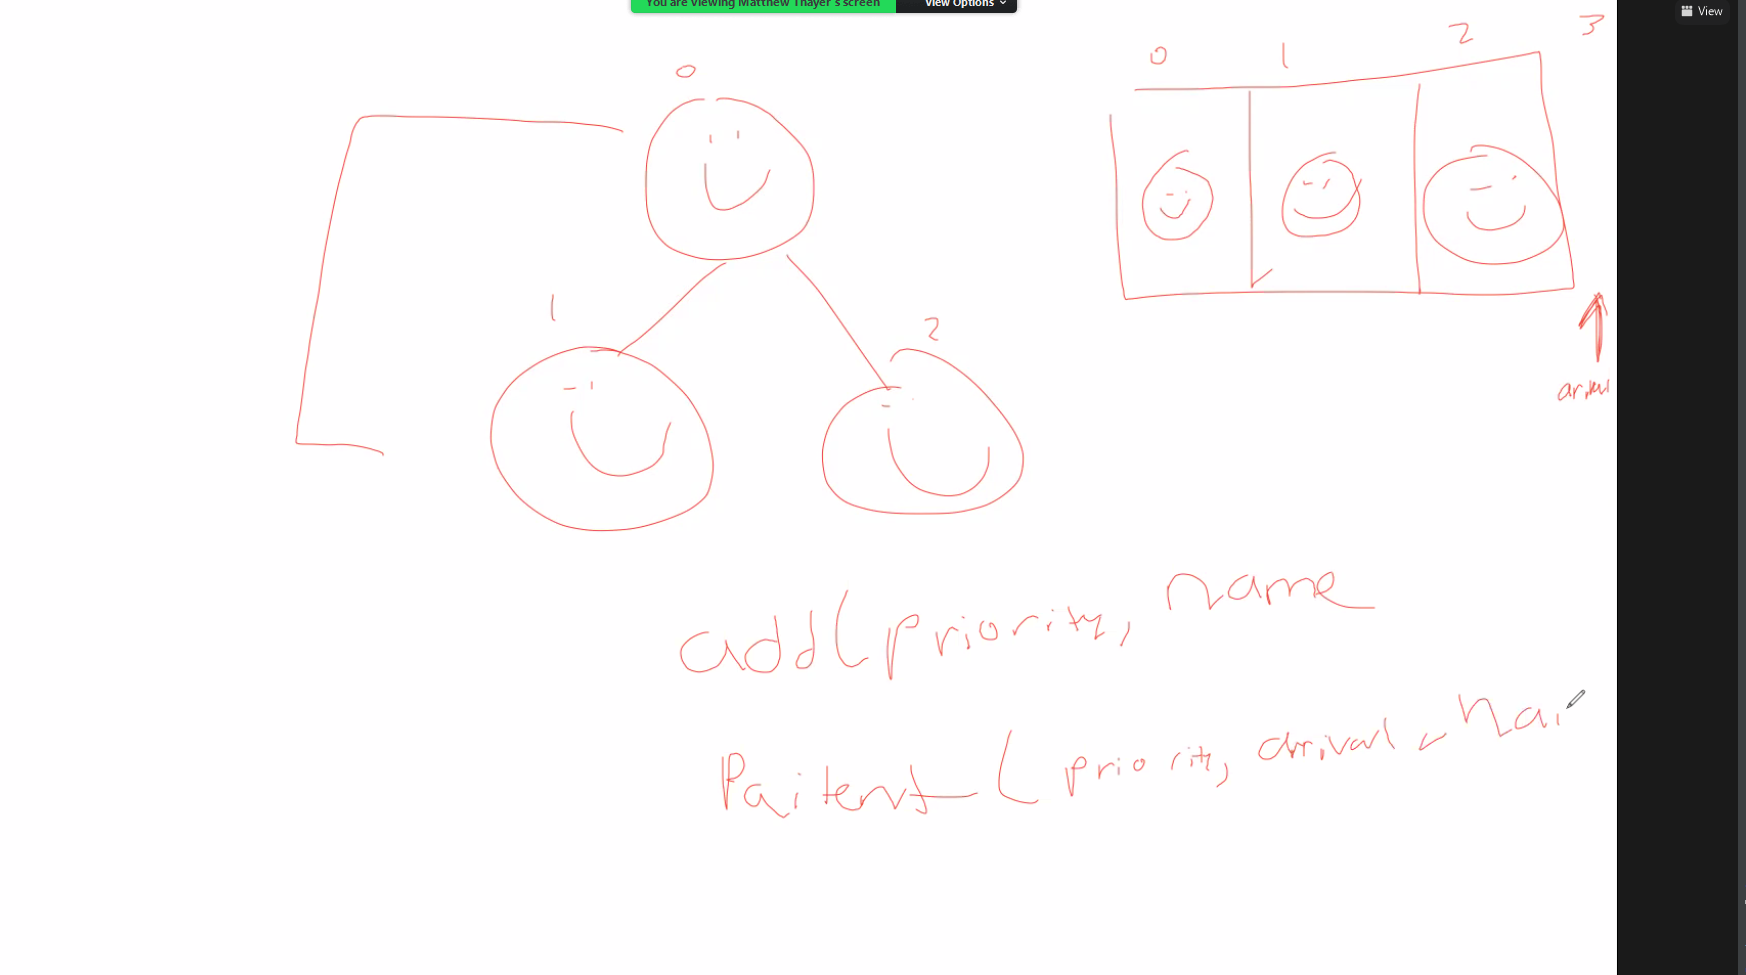 You are viewing Matthew Thayer's screen View Options
View
0
0 1 2 3
1
2
add(priority, name
Paitent (priority, arrival